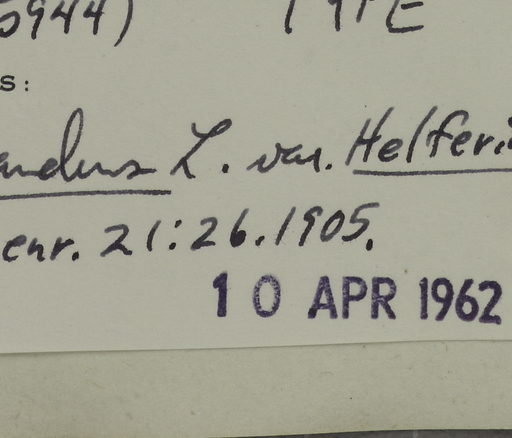 5944) TYPE
s:
andens L. var. Helferi
enr. 21:26.1905.
10 APR 1962